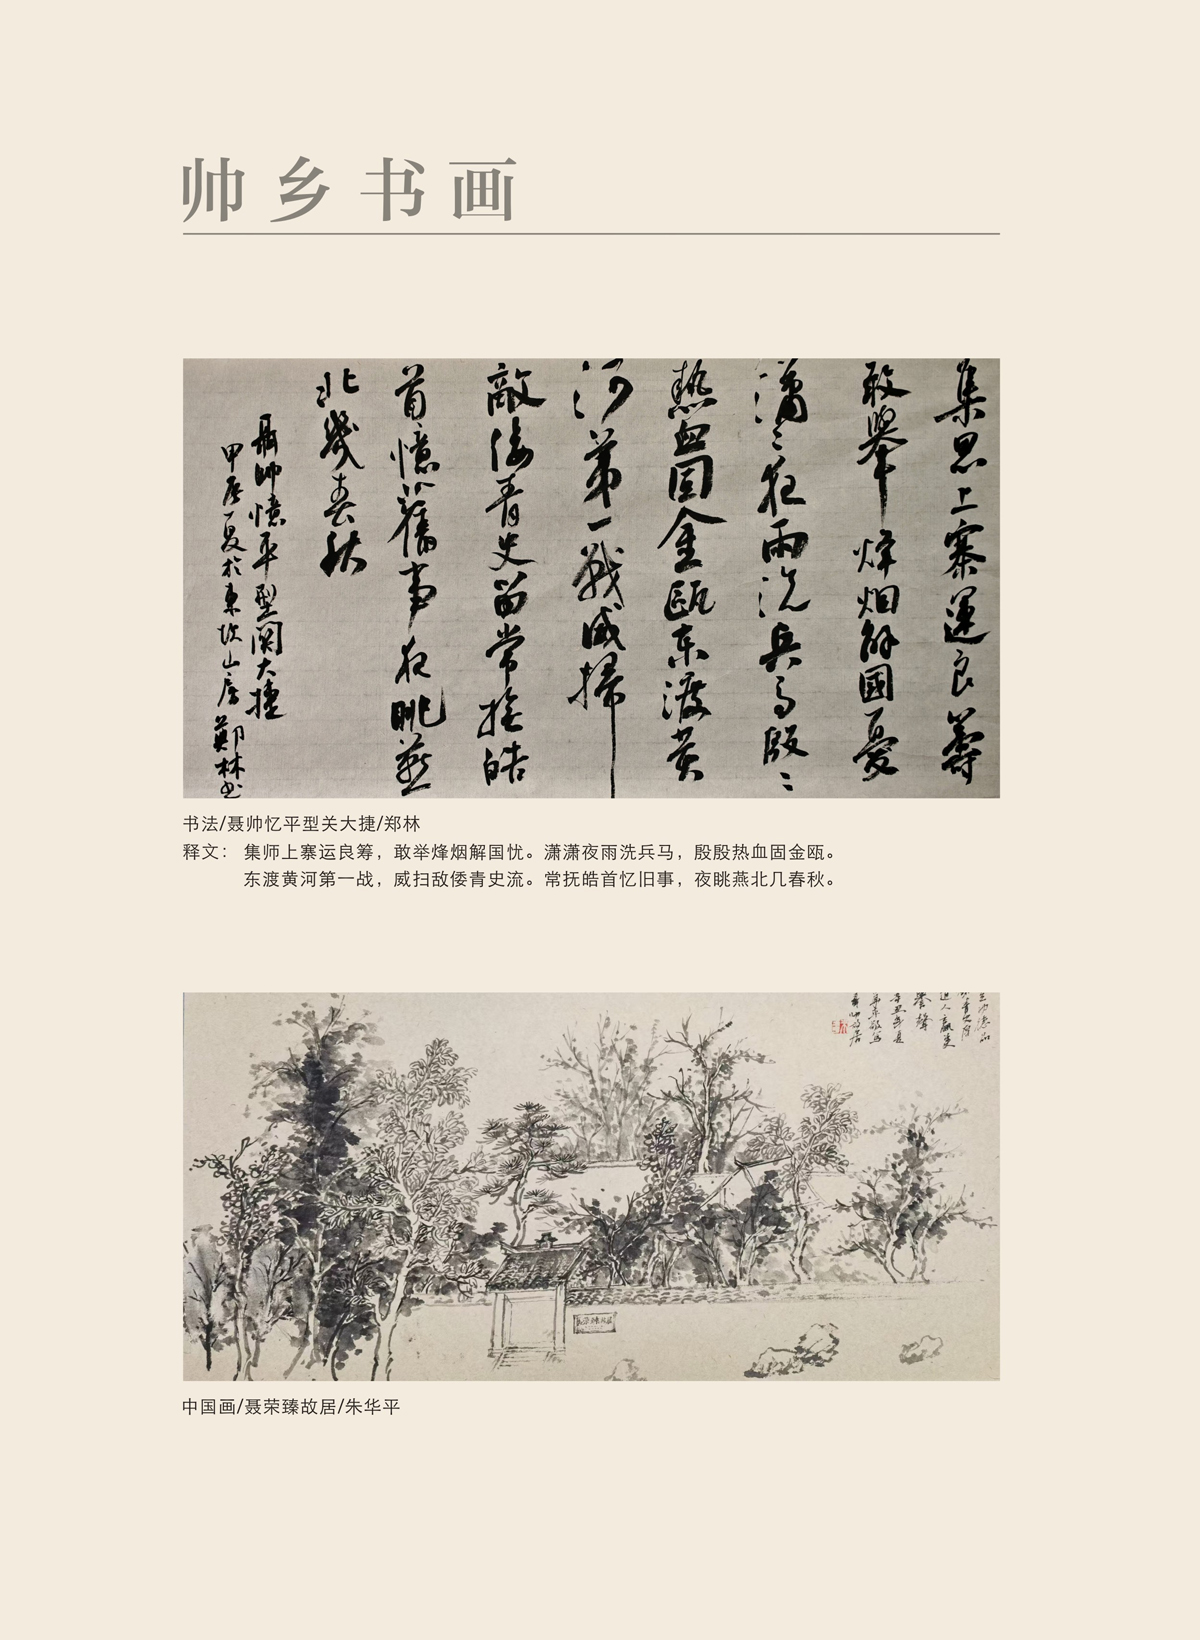 帅乡书画
集思上寨運良籌
敢舉烽烟解國憂
瀟〻夜雨洗兵马殷〻
熱血固金甌东渡黄
河第一戰威掃
敵倭青史留常撫皓
首憶舊事夜眺燕
北幾春秋
聶帥憶平型関大捷
甲辰夏於東坡山房鄭林书
书法/聂帅忆平型关大捷/郑林
释文： 集师上寨运良筹，敢举烽烟解国忧。潇潇夜雨洗兵马，殷殷热血固金瓯。
东渡黄河第一战，威扫敌倭青史流。常抚皓首忆旧事，夜眺燕北几春秋。
中国画/聂荣臻故居/朱华平